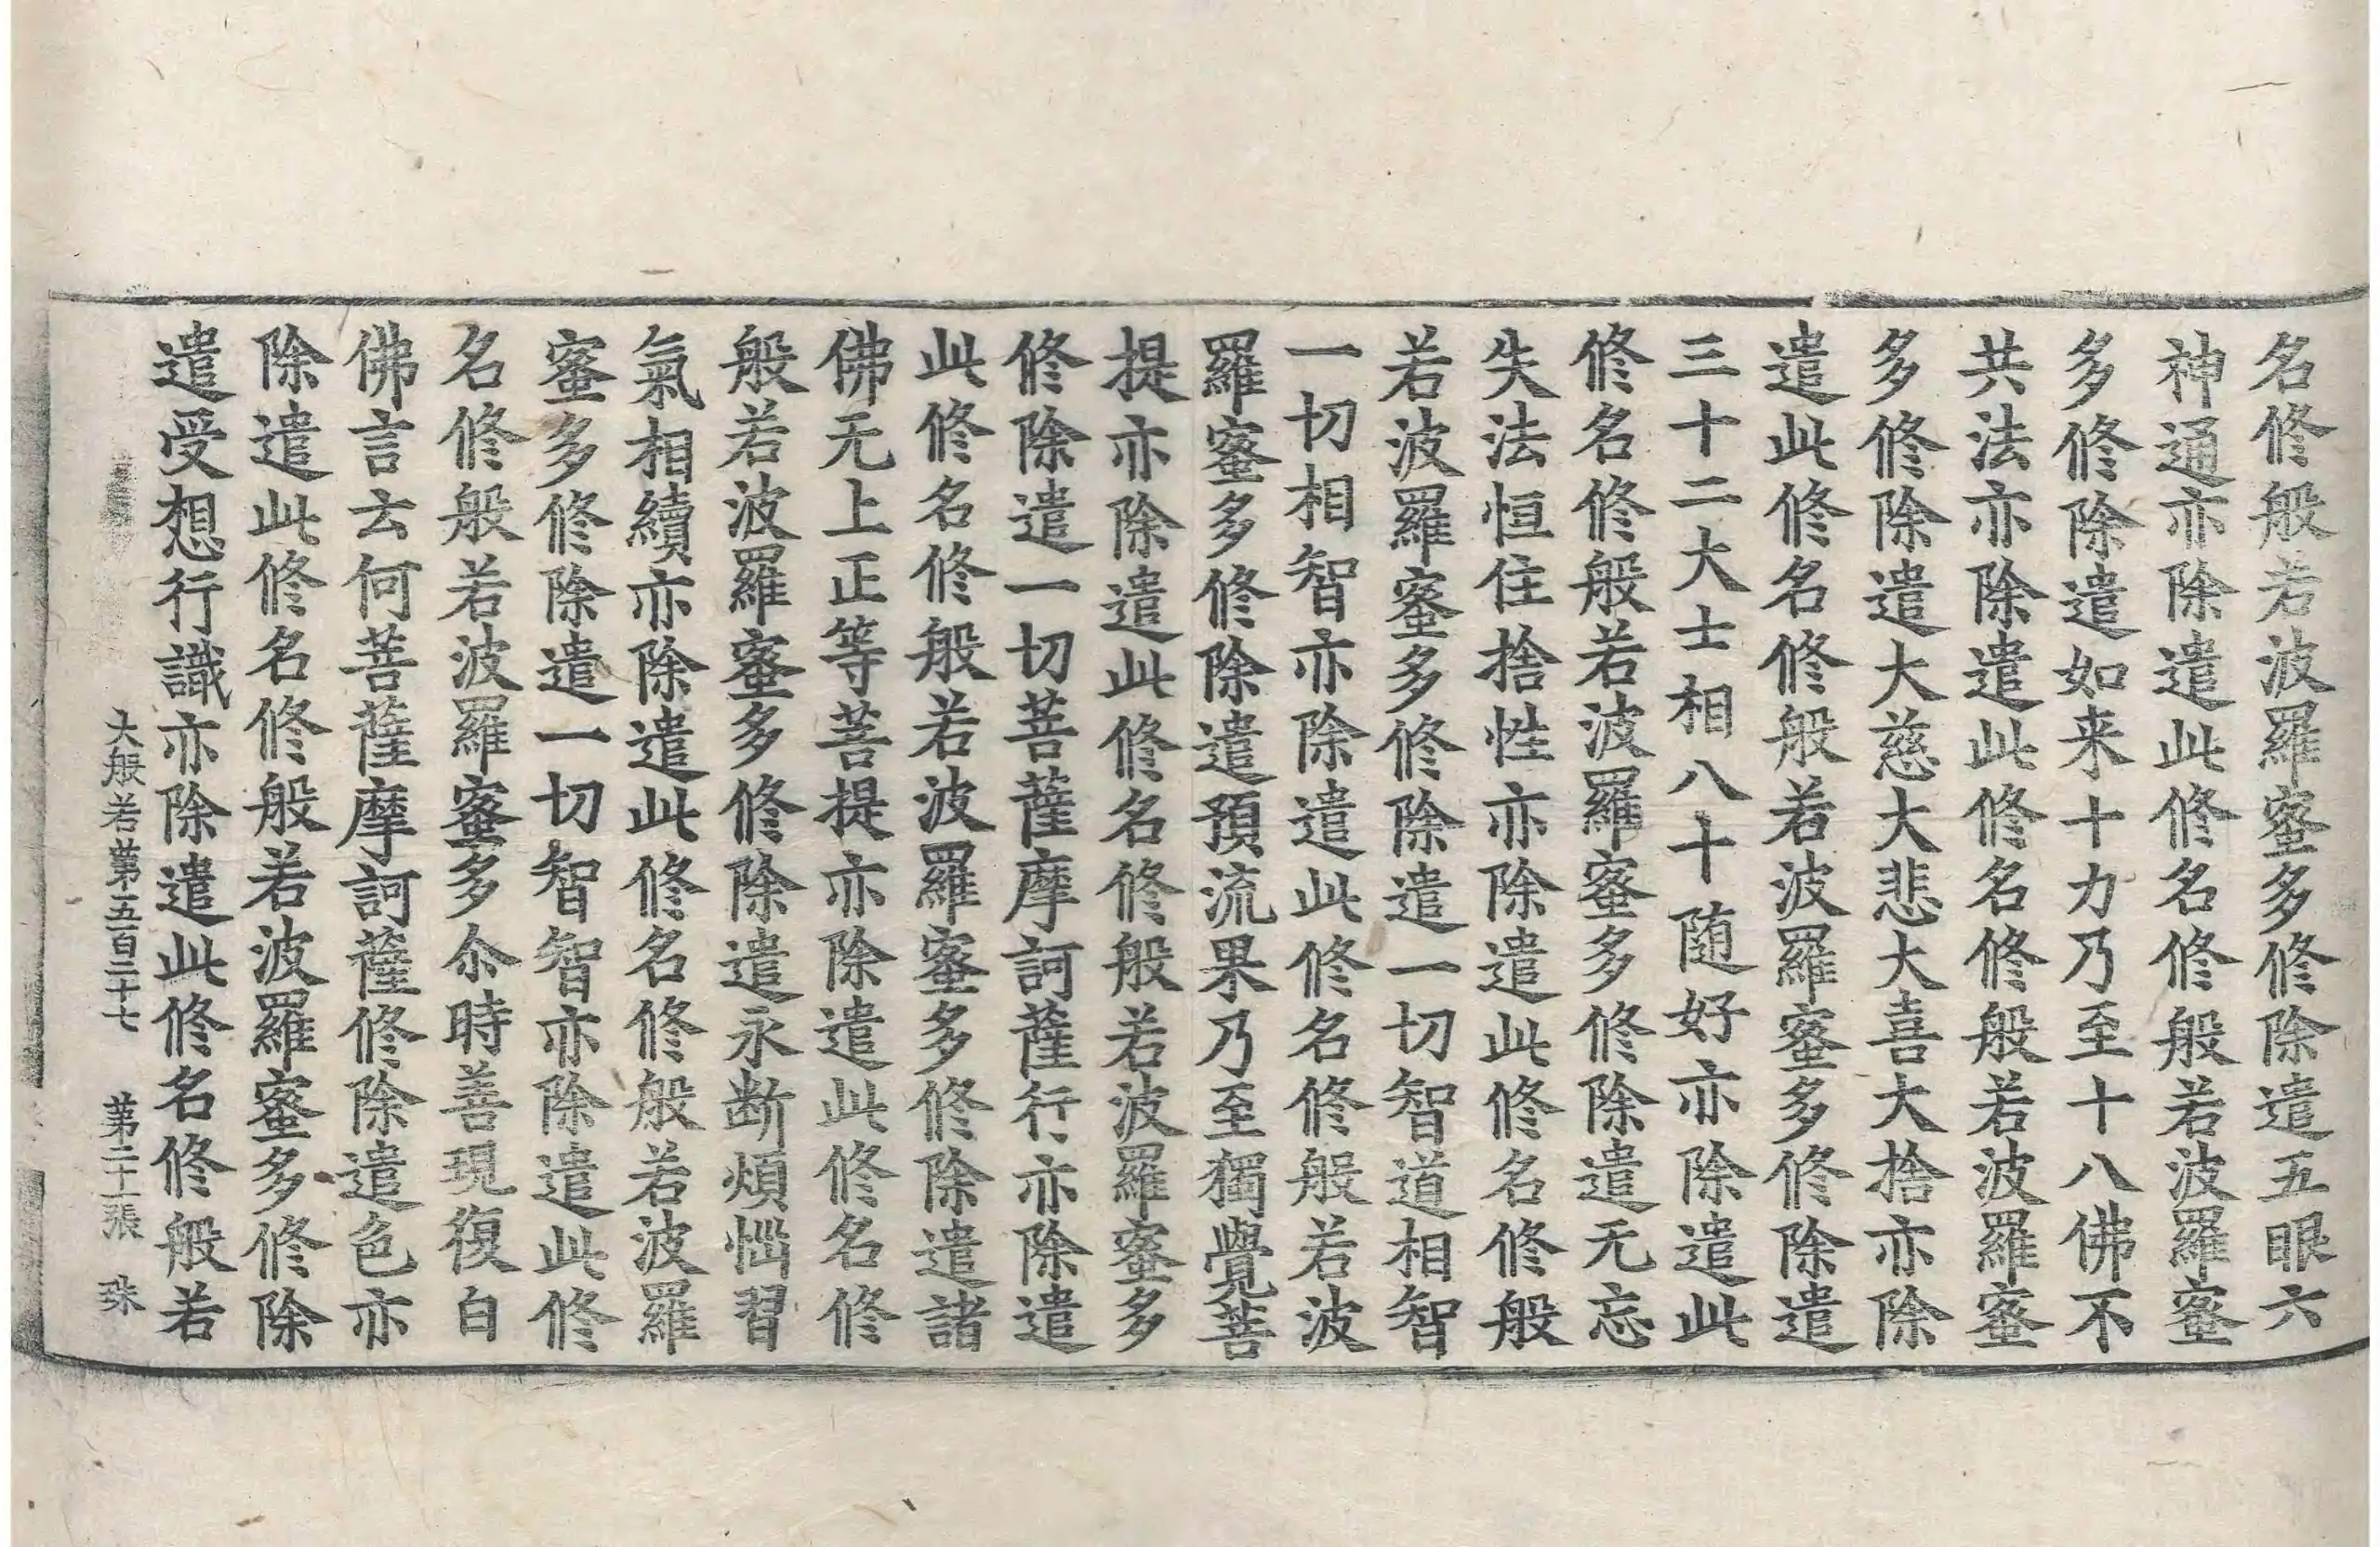 名修般若波羅蜜多修除遣五眼六
神通亦除遣此修名修般若波羅蜜
多修除遣如来十力乃至十八佛不
共法亦除遣此修名修般若波羅蜜
多修除遣大慈大悲大喜大捨亦除
遣此修名修般若波羅蜜多修除遣
三十二大士相八十随好亦除遣此
修名修般若波羅蜜多修除遣无忘
失法恒住捨性亦除遣此修名修般
若波羅蜜多修除遣一切智道相智
一切相智亦除遣此修名修般若波
羅蜜多修除遣預流果乃至獨覺菩
提亦除遣此修名修般若波羅蜜多
修除遣一切菩薩摩訶薩行亦除遣
此修名修般若波羅蜜多修除遣諸
佛无上正等菩提亦除遣此修名修
般若波羅蜜多修除遣永断煩惱習
氣相續亦除遣此修名修般若波羅
蜜多修除遣一切智智亦除遣此修
名修般若波羅蜜多尒時善現復白
佛言云何菩薩摩訶薩修除遣色亦
除遣此修名修般若波羅蜜多修除
遣受想行識亦除遣此修名修般若
大般若第五百二十七 第二十一張 珠